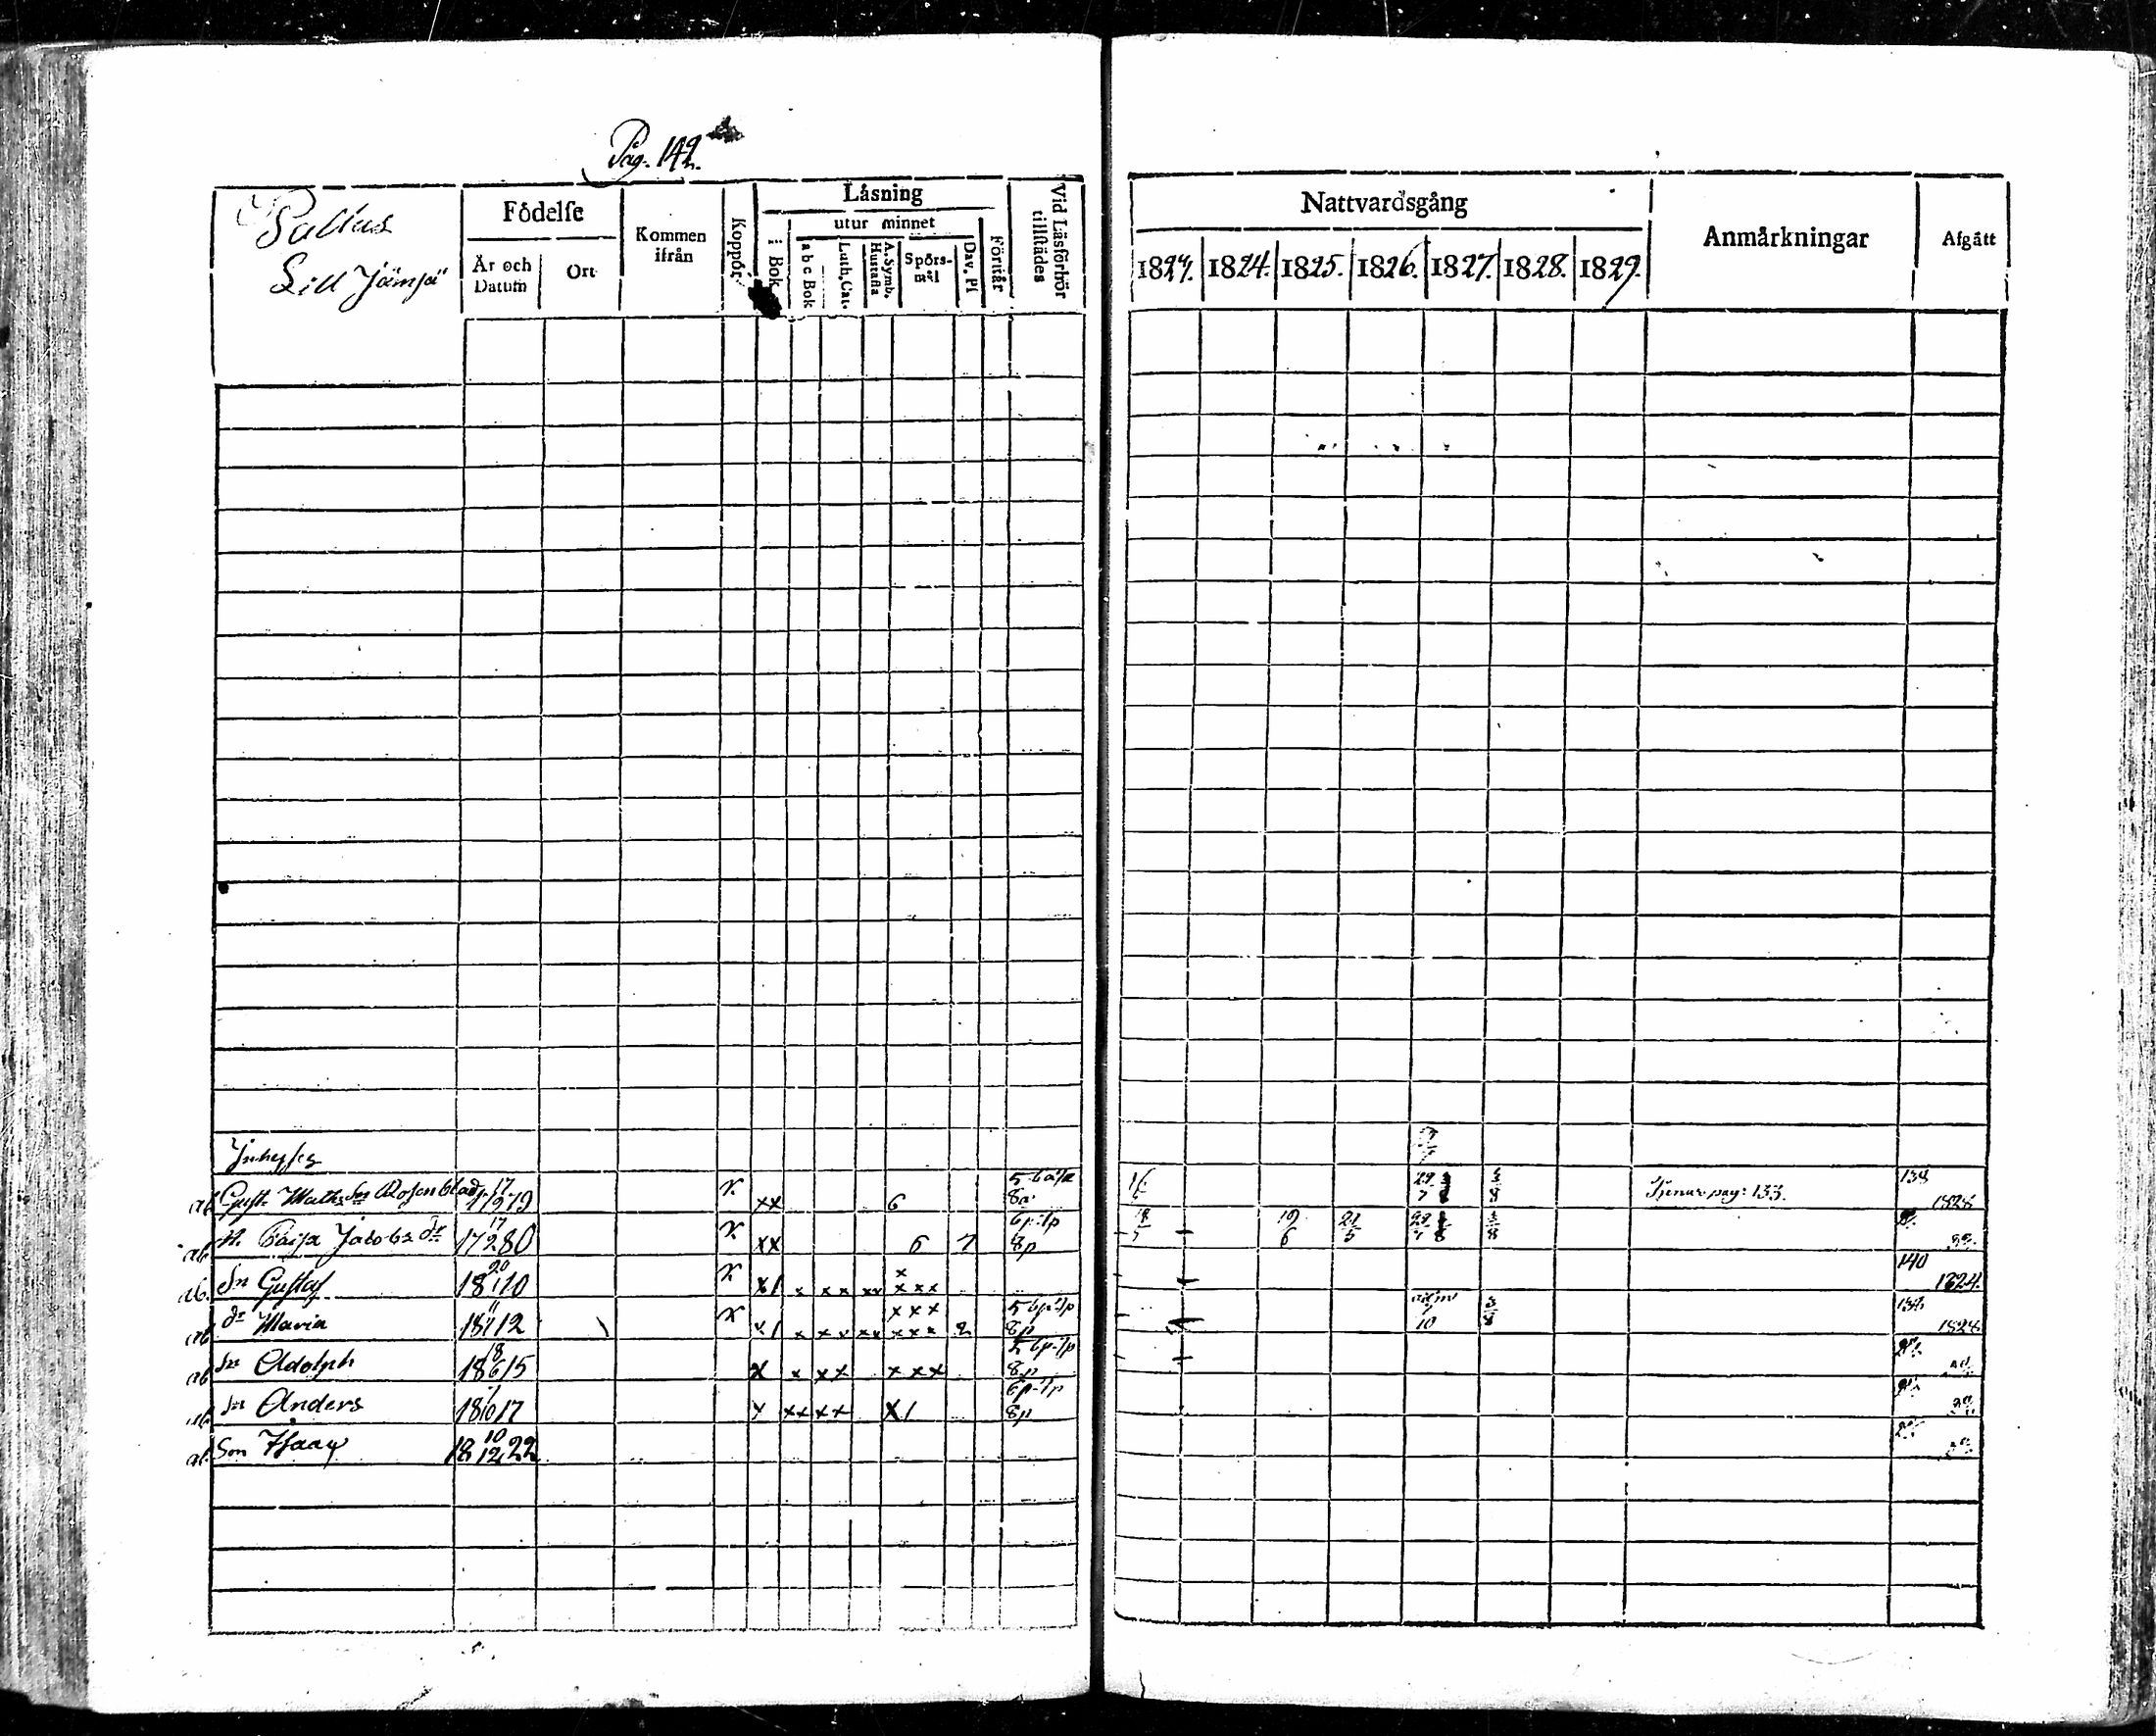 Pag. 142.
Pallus
Lill Jämjä
Födelse
År och Datum
Ort
Kommen ifrån
Koppor
Låsning
i Bok
utur minnet
a b c Bok
Luth. Cat.
A. Symb. Hustafla
Spörs-mål
Dav. Ps
Förstår
Vid Läsförhör tillstädes
Nattvardsgång
1824. 1825. 1826. 1827. 1828. 1829.
Anmärkningar
Afgått
Inhyses
ab Gust. Maths Sn Rosenblad 17 79 xx 6 8a Tjenar pag: 133. 1828
ab. H. Caisa Jacobs dr 17 17/2 80 xx 6 7 6p 7p 8p 19/6 21/5 3/8
ab. Sn Gustaf 18 20/1 10 x1 x xx xx x xxx 140 1824.
ab dr Maria 18 11/1 12 x1 x xx xx xxx xxx 2 5 6p 7p 8p 10 3/8 1828
ab Sn Adolph 18 18/6 15 x x xx xxx 5 6p 7p 8p
ab Sn Anders 18 17 x xx xx x1 6p 7p 8p
ab Son Isaac 18 10/12 22